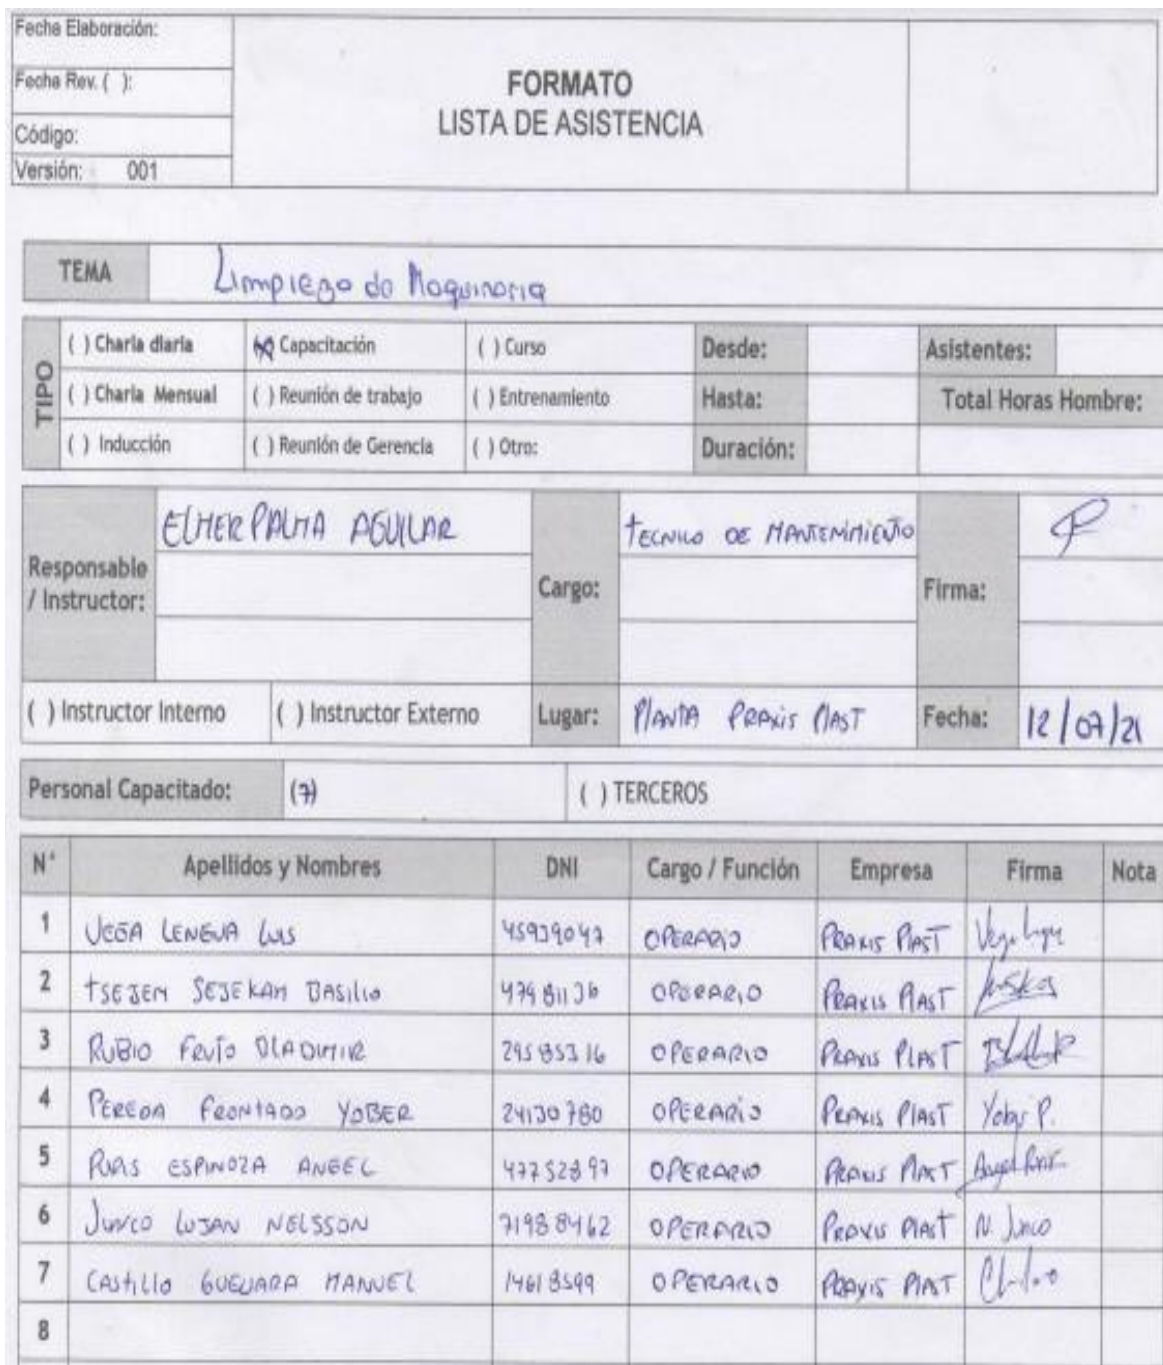 Fecha Elaboración:
Fecha Rev. ( ):
Código:
Versión: 001
FORMATO
LISTA DE ASISTENCIA
TEMA Limpieza de Maquinaria
TIPO
( ) Charla diaria (X) Capacitación ( ) Curso Desde: Asistentes:
( ) Charla Mensual ( ) Reunión de trabajo ( ) Entrenamiento Hasta: Total Horas Hombre:
( ) Inducción ( ) Reunión de Gerencia ( ) Otro: Duración:
Responsable / Instructor: ELMER PALMA AGUILAR Cargo: TECNICO DE MANTENIMIENTO Firma:
( ) Instructor Interno ( ) Instructor Externo Lugar: PLANTA PRAXIS PLAST Fecha: 12/07/21
Personal Capacitado: (7) ( ) TERCEROS
N° Apellidos y Nombres DNI Cargo / Función Empresa Firma Nota
1 VEGA LENGUA LUIS OPERARIO PRAXIS PLAST
2 TSEJEM SEJEKAM BASILIO OPERARIO PRAXIS PLAST
3 RUBIO FRUTO BLADIMIR 29585316 OPERARIO PRAXIS PLAST
4 PEREDA FRONTADO YOBER 24130780 OPERARIO PRAXIS PLAST Yober P.
5 ESPINOZA ANGEL 47752897 OPERARIO PRAXIS PLAST
6 JUNCO LUJAN NELSSON 71988462 OPERARIO PRAXIS PLAST N. Junco
7 CASTILLO GUEVARA MANUEL 14618599 OPERARIO PRAXIS PLAST
8